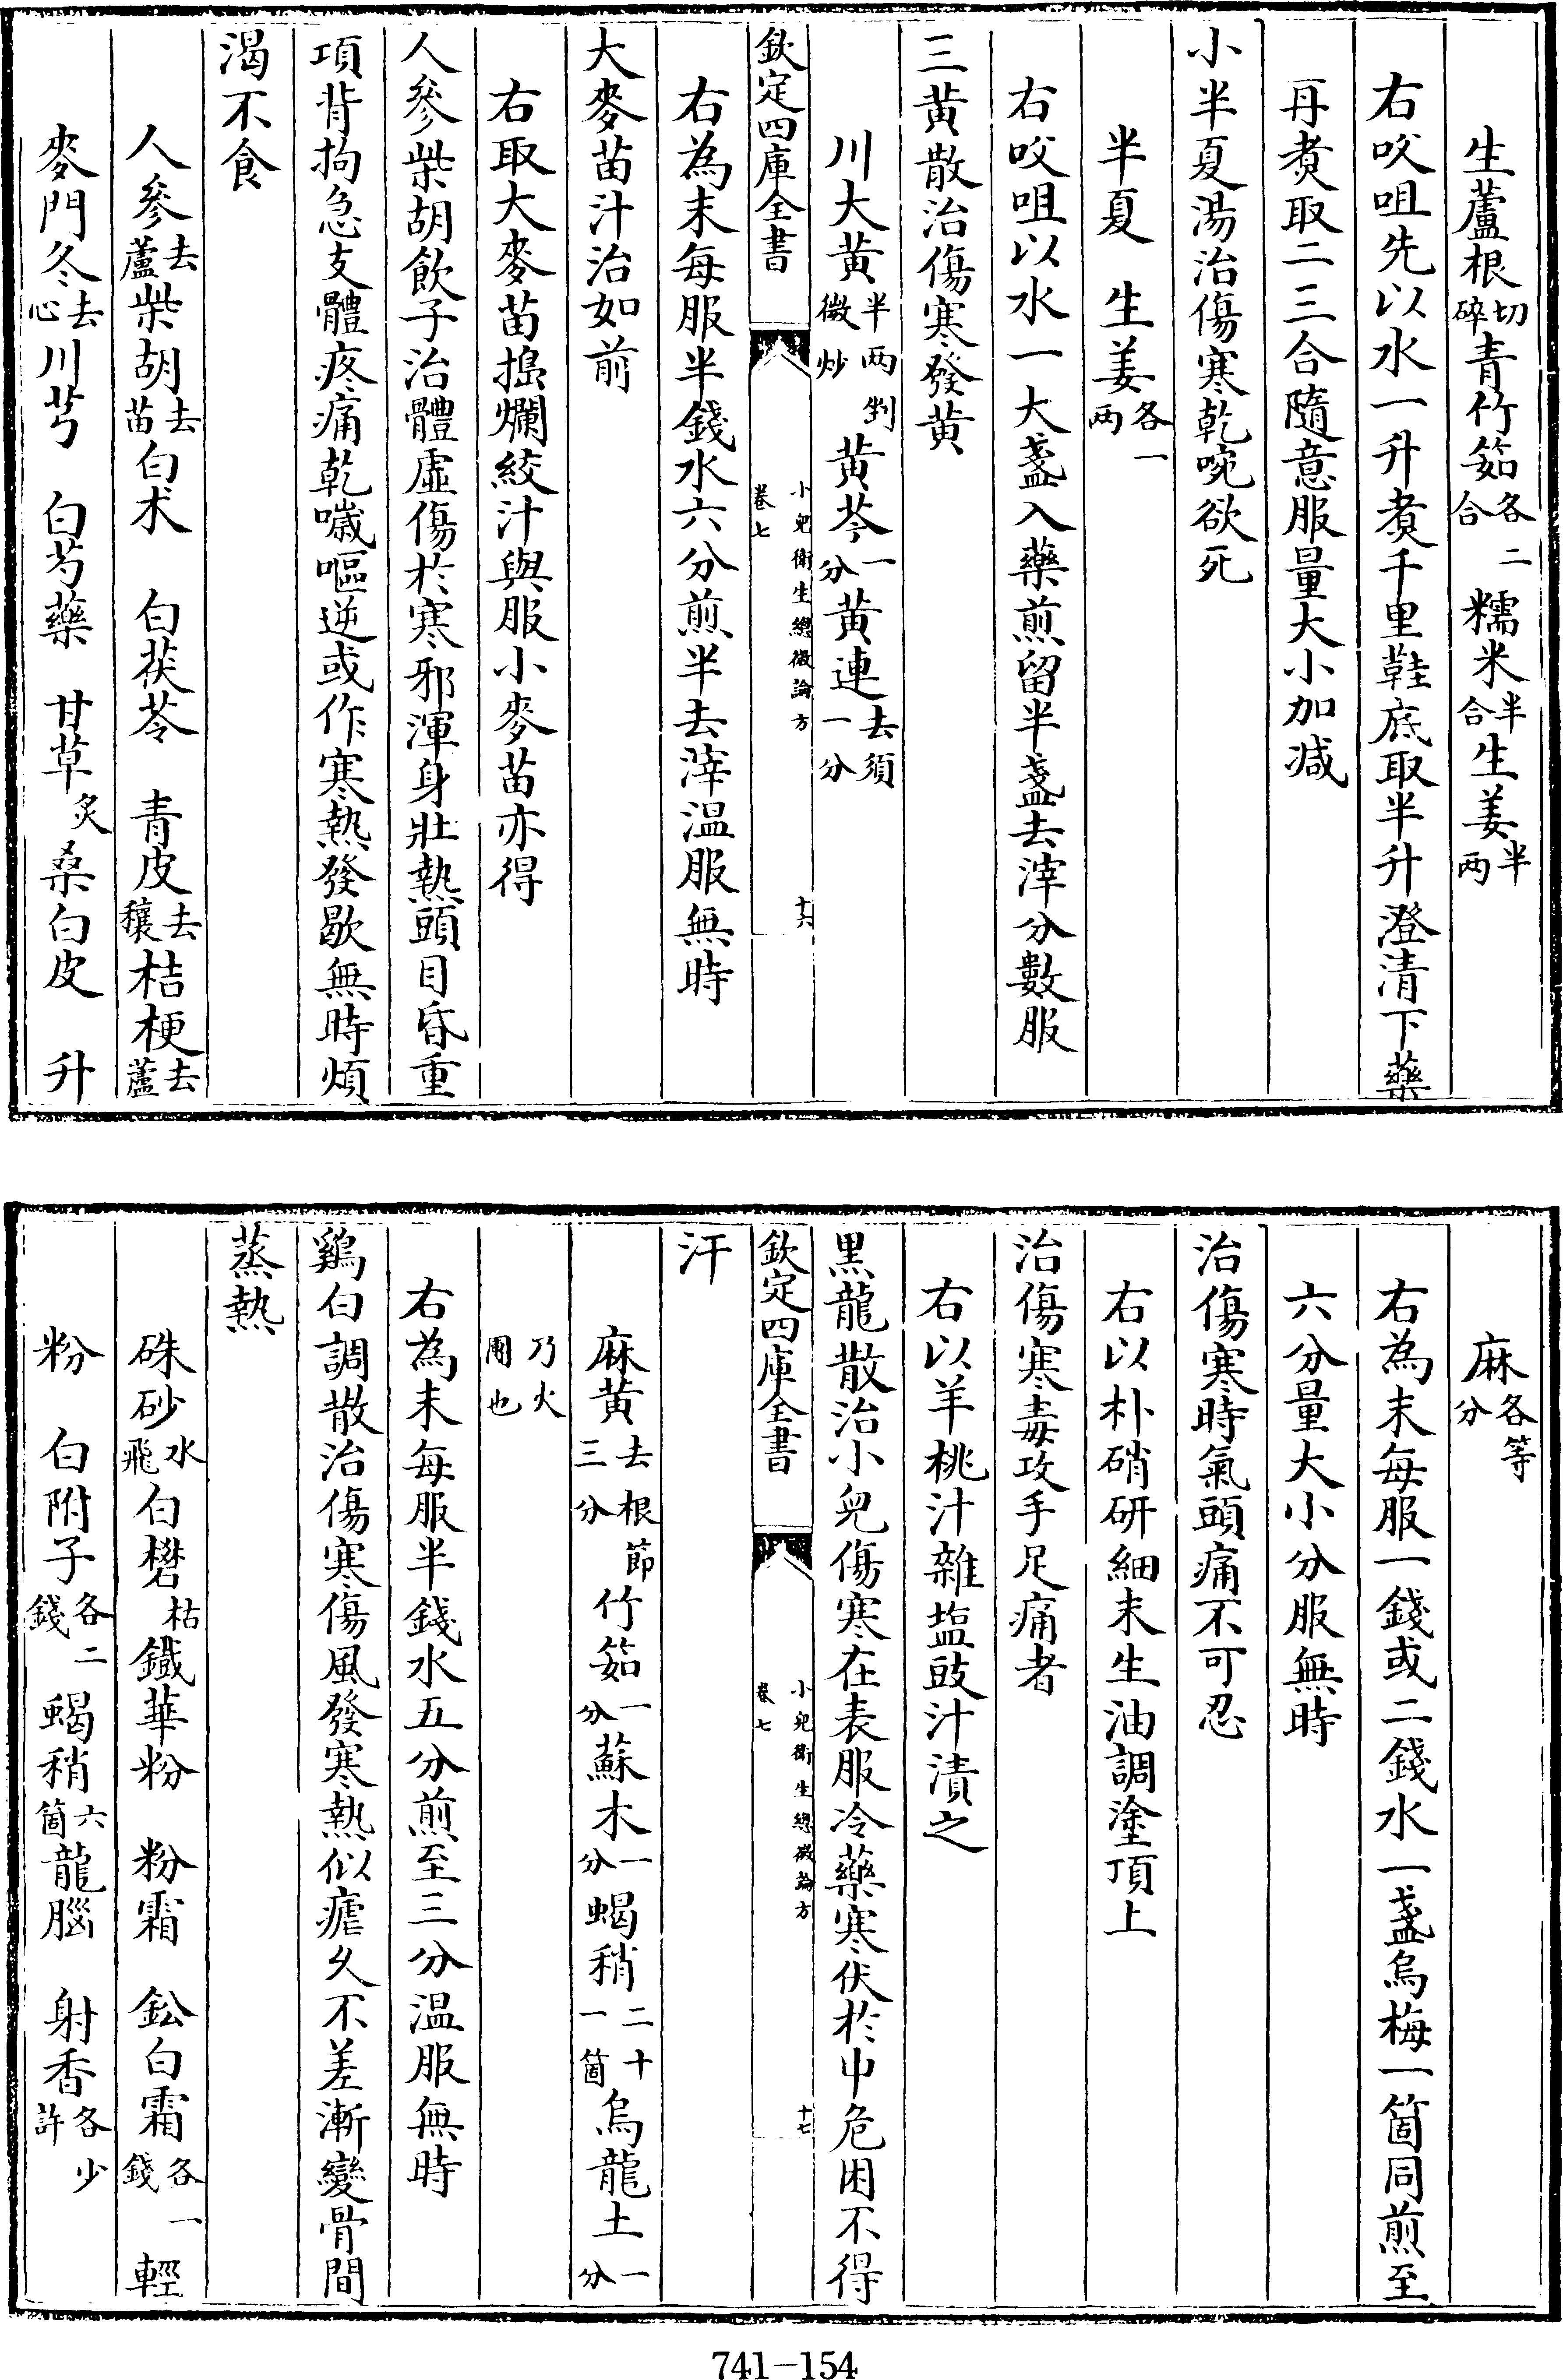 生蘆根切碎青竹筎各二合糯米半合生姜半两
右㕮咀先以水一升煮千里鞋底取半升澄清下藥
再煮取二三合隨意服量大小加减
小半夏湯治傷寒乾啘欲死
半夏　生姜各一两
右㕮咀以水一大盞入藥煎留半盞去滓分數服
三黄散治傷寒發黄
川大黄半两剉微炒黄芩一分黄連去須一分
欽定四庫全書　小兒衛生總微論方卷七　十六
右為末每服半錢水六分煎半去滓温服無時
大麥苗汁治如前
右取大麥苗搗爛絞汁與服小麥苗亦得
人參柴胡飲子治體虛傷於寒邪渾身壯熱頭目昏重
項背拘急支體疼痛乾噦嘔逆或作寒熱發歇無時煩
渴不食
人參去蘆柴胡去苗白术　白茯苓　青皮去穰桔梗去蘆
麥門冬去心川芎　白芍藥　甘草炙桑白皮　升
麻各等分
右為末每服一錢或二錢水一盞烏梅一箇同煎至
六分量大小分服無時
治傷寒時氣頭痛不可忍
右以朴硝研細末生油調塗頂上
治傷寒毒攻手足痛者
右以羊桃汁雜塩豉汁漬之
黒龍散治小兒傷寒在表服冷藥寒伏於中危困不得
欽定四庫全書　小兒衛生總微論方卷七　十七
汗
麻黄去根節三分竹筎一分蘇木一分蝎稍二十一箇烏龍土一分
乃火圊也
右為末每服半錢水五分煎至三分温服無時
鷄白調散治傷寒傷風發寒熱似瘧久不差漸變骨間
蒸熱
硃砂水飛白礬枯鐵華粉　粉霜　鈆白霜各一錢輕
粉　白附子各二錢　蝎稍六箇龍腦　射香各少許
741—154